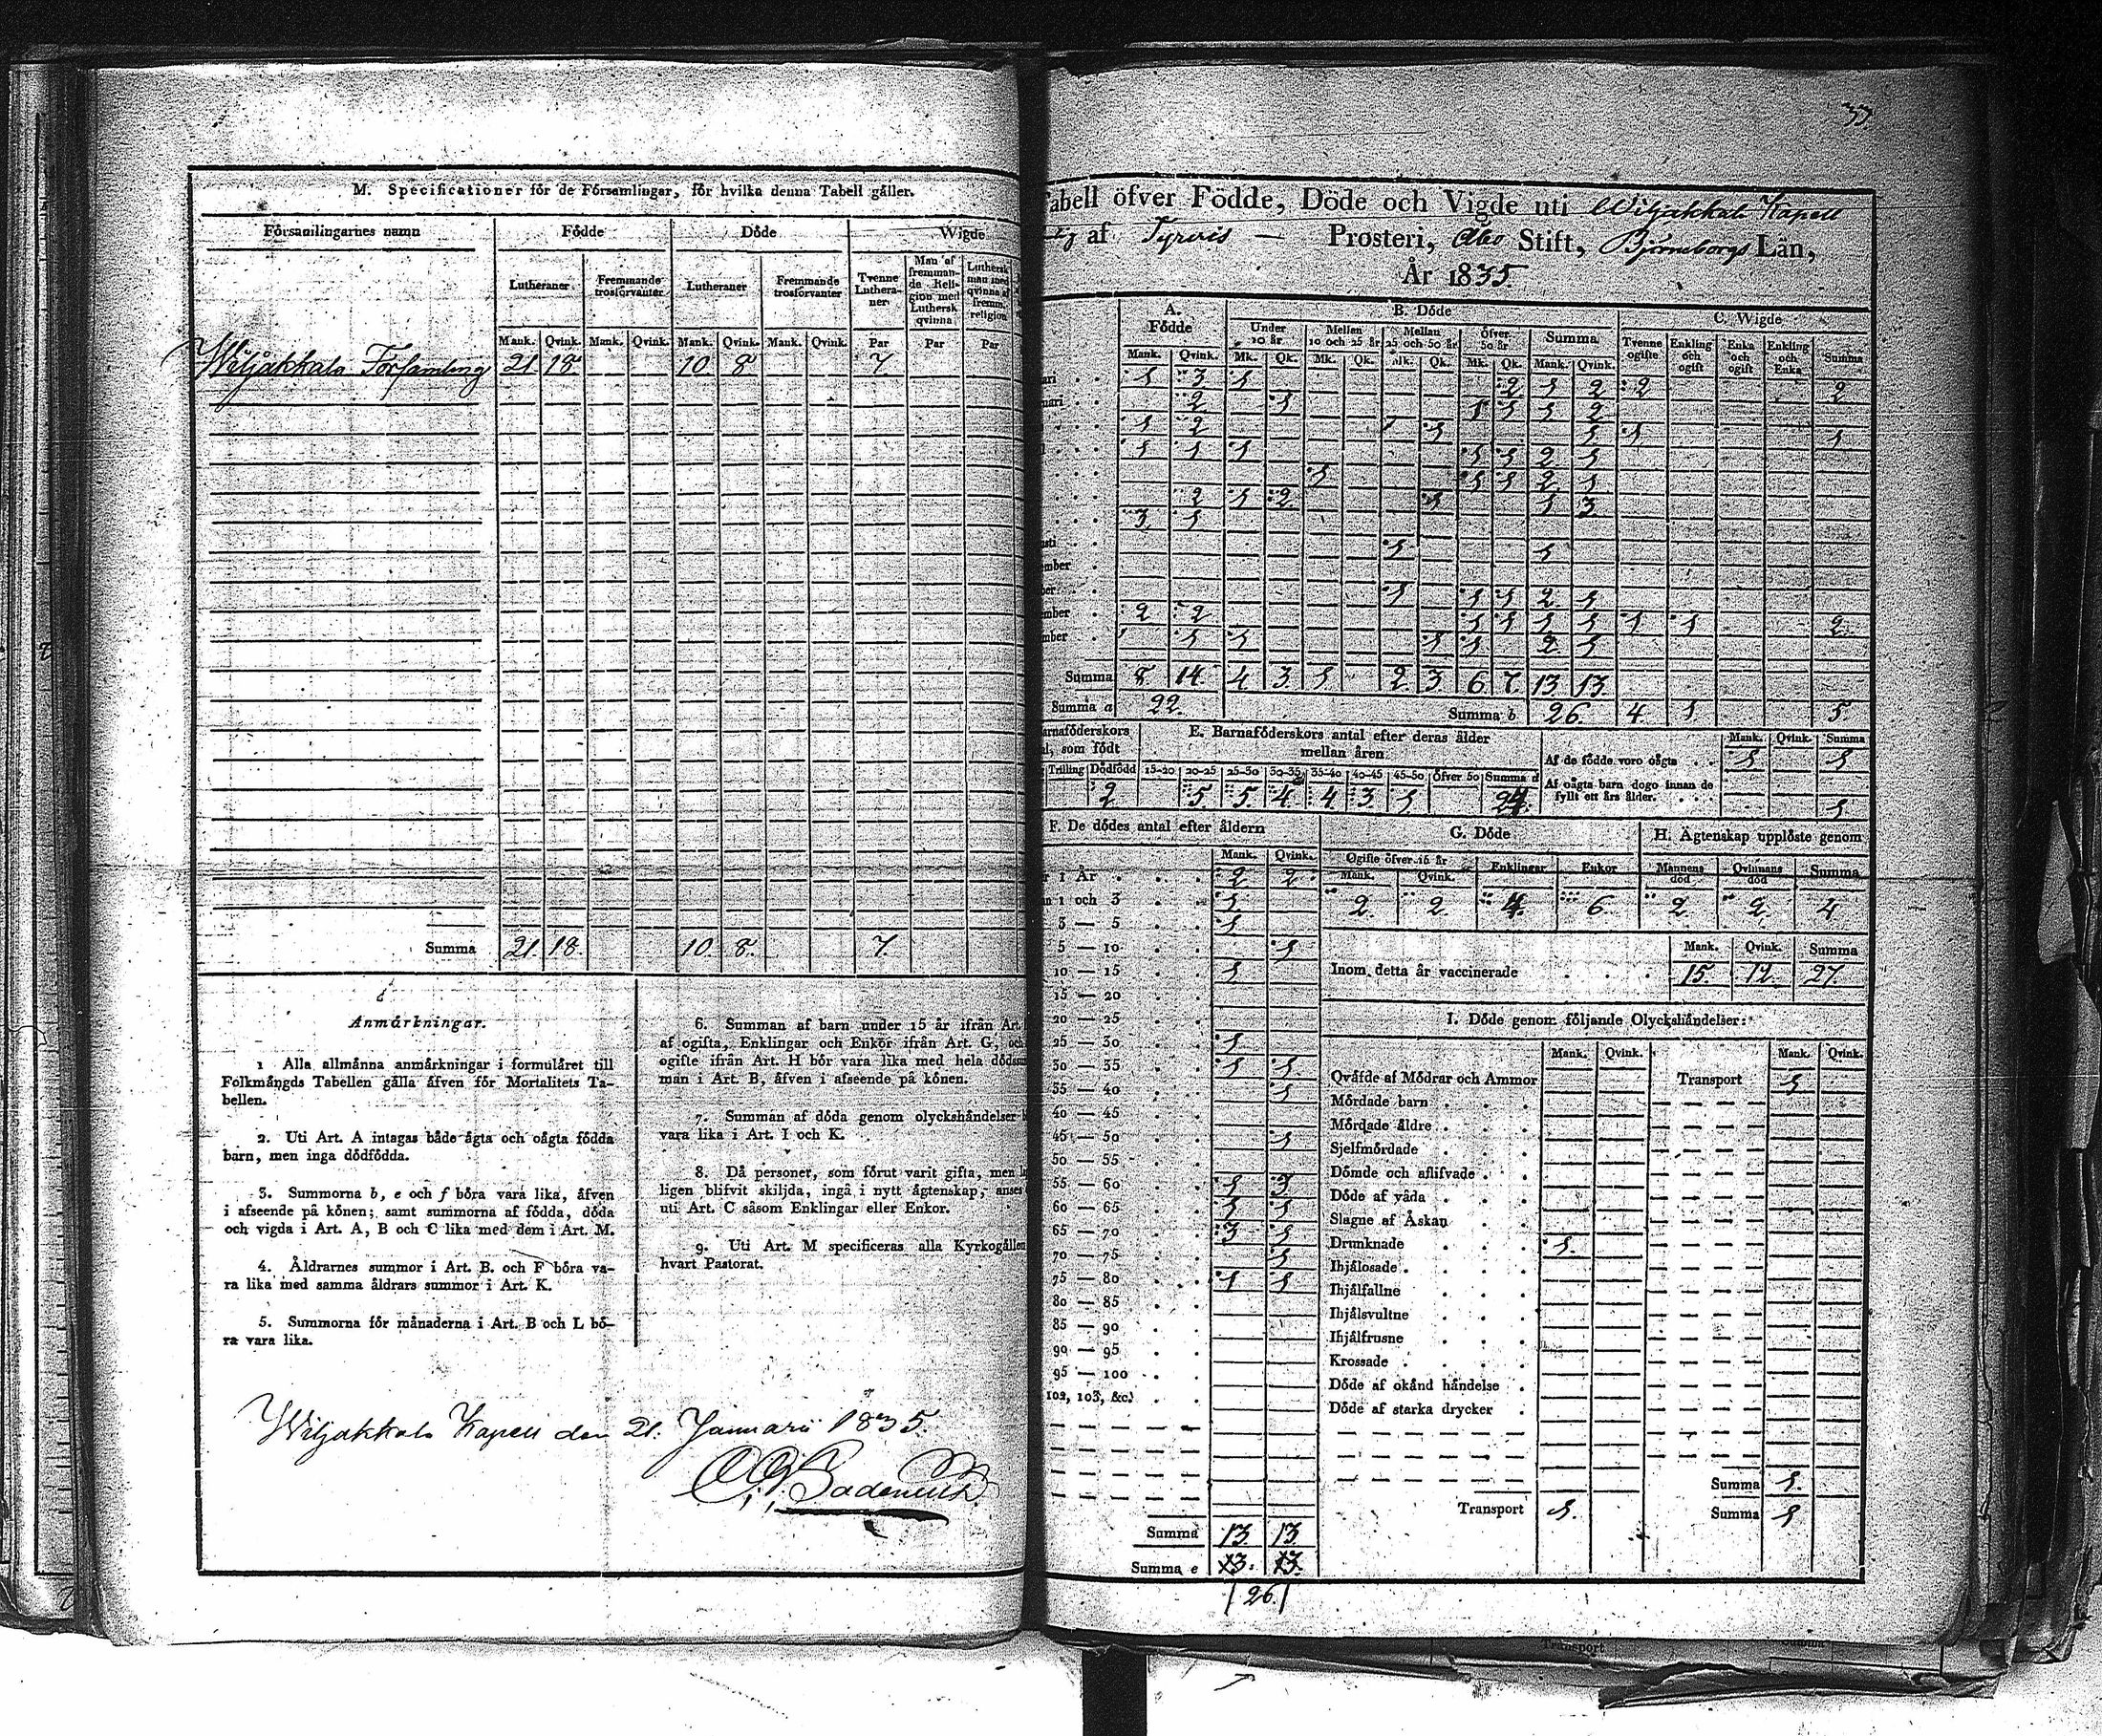 M. Specificationer för de Församlingar, för hvilka denna Tabell gäller.
Församlingarnes namn Födde Döde Wigde
Lutheraner Fremmande trosförvanter Lutheraner Fremmande trosförvanter Tvenne Lutheraner Man af fremmande Religion med Luthersk qvinna Luthersk man med qvinna af fremm. religion
Mank. Qvink. Mank. Qvink. Mank. Qvink. Mank. Qvink. Par Par Par
Wiljakkala Församling 21 18 10 8 7
Summa 21. 18. 10. 8. 7.
Anmärkningar.
1 Alla allmänna anmärkningar i formuläret till
Folkmängds Tabellen gälla äfven för Mortalitets Ta-
bellen.
2. Uti Art. A intagas både ägta och oägta födda
barn, men inga dödfödda.
3. Summorna b, e och f böra vara lika, äfven
i afseende på könen; samt summorna af födda, döda
och vigda i Art. A, B och C lika med dem i Art. M.
4. Åldrarnes summor i Art. B. och F böra va-
ra lika med samma åldrars summor i Art. K.
5. Summorna för månaderna i Art. B och L bö-
ra vara lika.
6. Summan af barn under 15 år ifrån Art.
af ogifta, Enklingar och Enkor ifrån Art. G, och
ogifte ifrån Art. H bör vara lika med hela döds
man i Art. B, äfven i afseende på könen.
7. Summan af döda genom olyckshändelser
vara lika i Art. I och K.
8. Då personer, som förut varit gifta, men
ligen blifvit skiljda, ingå i nytt ägtenskap, anses
uti Art. C såsom Enklingar eller Enkor.
9. Uti Art. M specificeras alla Kyrkogällen
hvart Pastorat.
Wiljakkala Kapell den 21. Januarii 1835.
abell öfver Födde, Döde och Vigde uti Wiljakkala Kapell
af Tyrvis — Prosteri, Åbo Stift, Björneborgs Län,
År 1835.
A. Födde B. Döde C. Wigde
Under 10 år Mellan 10 och 25 år Mellan 25 och 50 år Öfver 50 år Summa Tvenne ogifte Enkling och ogift Enka och ogift Enkling och Enka Summa
Mank. Qvink. Mk. Qk. Mk. Qk. Mk. Qk. Mk. Qk. Mank. Qvink.
ari 1 3 1 2 1 2 2 2
uari 2 1 1 1 1 2
1 2 1 1 1 1
1 1 1 1 1 2 1
1 1 1 2 1
2 1 2 1 1 3
3 1
sti 1 1
ember
ber 1 1 1 2 1
ember 2 2 1 1 1 1 1 1 2
mber 1 1 1 1 2 1
Summa 8 14 4 3 1 2 3 6 7 13 13
Summa a 22. Summa b 26. 4 1 5
arnaföderskors
l, som födt
Trilling Dödfödd
2
E. Barnaföderskors antal efter deras ålder
mellan åren
15-20 20-25 25-30 30-35 35-40 40-45 45-50 Öfver 50 Summa d
5. 5. 4. 4 3. 1
Mank. Qvink. Summa
Af de födde voro oägta 1 1
Af oägta barn dogo innan de
fyllt ett års ålder. 1
F. De dödes antal efter åldern
Mank. Qvink.
r 1 År 2 2
n 1 och 3 1
3 — 5 1
5 — 10 1
10 — 15 1
15 — 20
20 — 25
25 — 30 1
30 — 35 1 1
35 — 40 1
40 — 45
45 — 50 1
50 — 55
55 — 60 1 3
60 — 65 1 1
65 — 70 3 1
70 — 75 1
75 — 80 1 1
80 — 85
85 — 90
90 — 95
95 — 100
102, 103, &c.
Summa 13. 13.
Summa e 13. 13.
26.
G. Döde
Ogifte öfver 15 år Enklingar Enkor
Mank. Qvink.
2. 2. 4. 6.
H. Ägtenskap upplöste genom
Mannens död Qvinnans död Summa
2. 2. 4
Mank. Qvink. Summa
Inom detta år vaccinerade 15. 12. 27.
I. Döde genom följande Olyckshändelser:
Mank. Qvink. Mank. Qvink.
Qväfde af Mödrar och Ammor Transport 1
Mördade barn
Mördade äldre
Sjelfmördade
Dömde och aflifvade
Döde af våda
Slagne af Åskan
Drunknade 1.
Ihjälosade
Ihjälfallne
Ihjälsvultne
Ihjälfrusne
Krossade
Döde af okänd händelse
Döde af starka drycker
Summa 1.
Transport 1. Summa 1